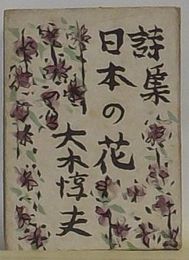 詩集
日本の花
大木惇夫